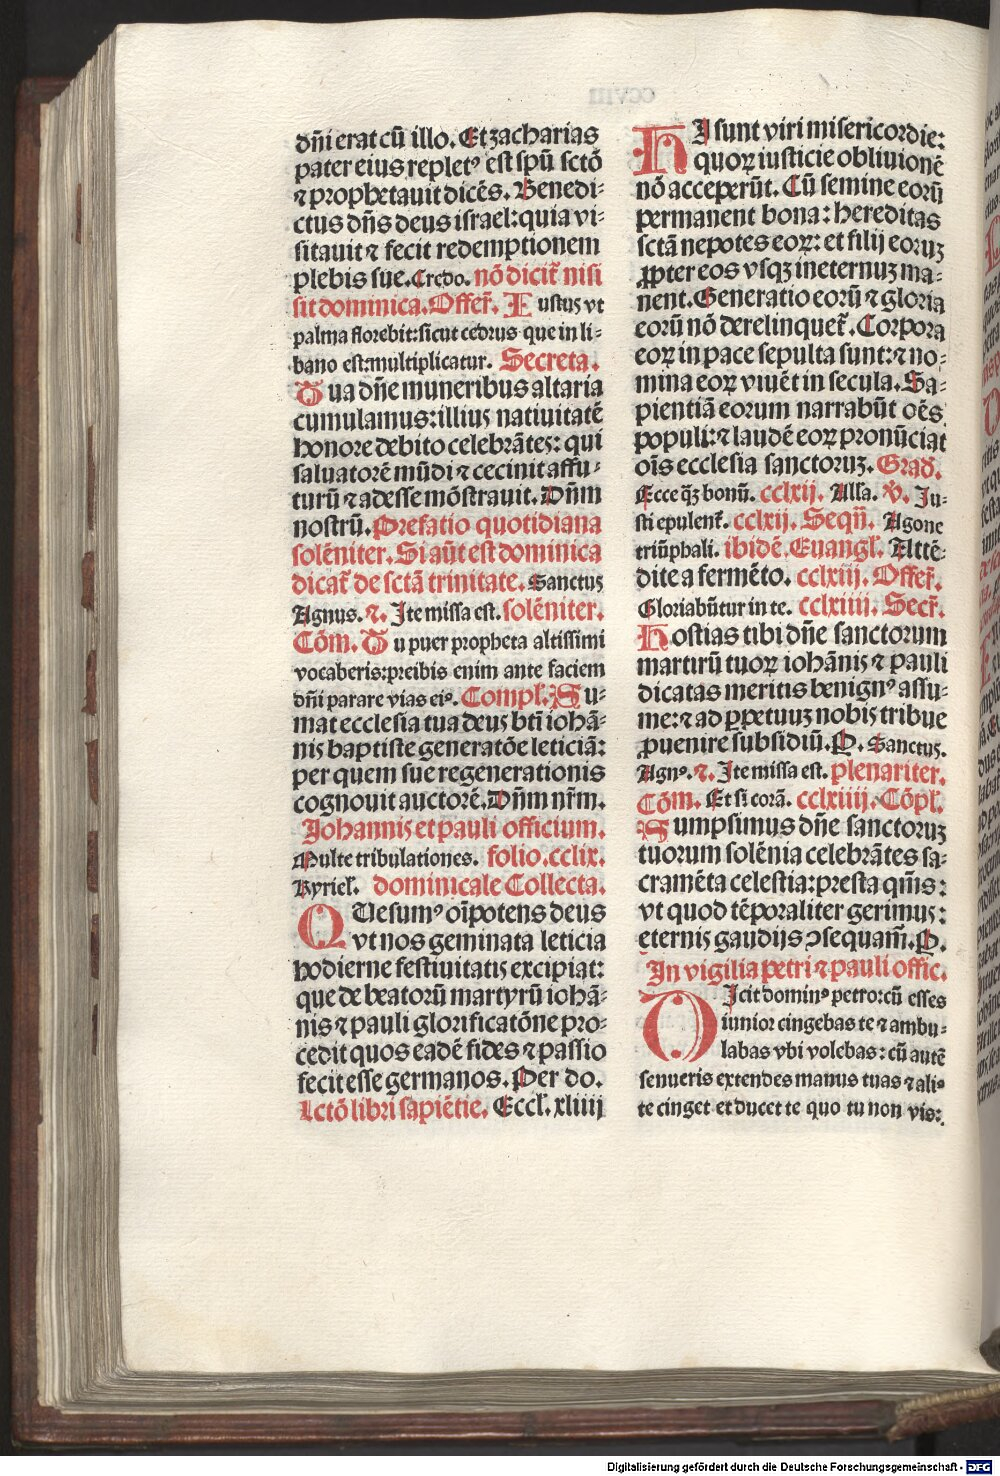 dn̄i erat cū illo. Et zacharias
pater eius replet⁹ est spū sctō
⁊ prophetauit dicēs. Benedi-
ctus dn̄s deus israel: quia vi-
sitauit ⁊ fecit redemptionem
plebis sue. Credo. nō dicit̄ nisi
sit dominica. Offer̄. Iustus vt
palma florebit: sicut cedrus que in li-
bano est: multiplicatur. Secreta.
Tua dn̄e muneribus altaria
cumulamus: illius natiuitatē
honore debito celebrātes: qui
saluatorē mūdi ⁊ cecinit affu-
turū ⁊ adesse mōstrauit. Dn̄m
nostrū. Prefatio quotidiana
solēniter. Si aūt est dominica
dicat̄ de sctā trinitate. Sanctus
Agnus. ⁊. Ite missa est. solēniter.
Cōm. Tu puer propheta altissimi
vocaberis: preibis enim ante faciem
dn̄i parare vias ei⁹. Compl̄. Su-
mat ecclesia tua deus bt̄i iohā-
nis baptiste generatōe leticiā:
per quem sue regenerationis
cognouit auctorē. Dn̄m nr̄m.
Johannis et pauli officium.
Multe tribulationes. folio. cclix.
Kyriel̄. dominicale Collecta.
QUesum⁹ oīpotens deus
vt nos geminata leticia
hodierne festiuitatis excipiat:
que de beatorū martyrū iohā-
nis ⁊ pauli glorificatōne pro-
cedit quos eadē fides ⁊ passio
fecit esse germanos. Per do.
Lctō libri sapiētie. Eccl̄. xliiij
HI sunt viri misericordie:
quoꝝ iusticie obliuionē
nō acceperūt. Cū semine eorū
permanent bona: hereditas
sctā nepotes eoꝝ: et filij eoruꝫ
ꝓpter eos vsqꝫ ineternuꝫ ma-
nent. Generatio eorū ⁊ gloria
eorū nō derelinquet̄. Corpora
eoꝝ in pace sepulta sunt: ⁊ no-
mina eoꝝ viuēt in secula. Sa-
pientiā eorum narrabūt oēs
populi: ⁊ laudē eoꝝ pronūciat
oīs ecclesia sanctoruꝫ. Grad̄.
Ecce qꝫ bonū. cclxij. Alla. ℣. Ju-
sti epulent̄. cclxij. Seqn̄. Agone
triūphali. ibidē. Euangl̄. Attē-
dite a fermēto. cclxiij. Offer̄.
Gloriabūtur in te. cclxiiij. Secr̄.
Hostias tibi dn̄e sanctorum
martirū tuoꝝ iohānis ⁊ pauli
dicatas meritis benign⁹ assu-
me: ⁊ ad ꝑpetuuꝫ nobis tribue
ꝓuenire subsidiū. P. Sanctus.
Agn⁹. ⁊. Ite missa est. plenariter.
Cōm. Et si corā. cclxiiij. Cōpl̄.
Sumpsimus dn̄e sanctoruꝫ
tuorum solēnia celebrātes sa-
cramēta celestia: presta qm̄s:
vt quod tēporaliter gerimus:
eternis gaudijs ꝯsequam̄. P.
In vigilia petri ⁊ pauli offic.
DIcit domin⁹ petro: cū esses
iunior cingebas te ⁊ ambu-
labas vbi volebas: cū autē
senueris extendes manus tuas ⁊ ali⁹
te cinget et ducet te quo tu non vis:
Digitalisierung gefördert durch die Deutsche Forschungsgemeinschaft - DFG